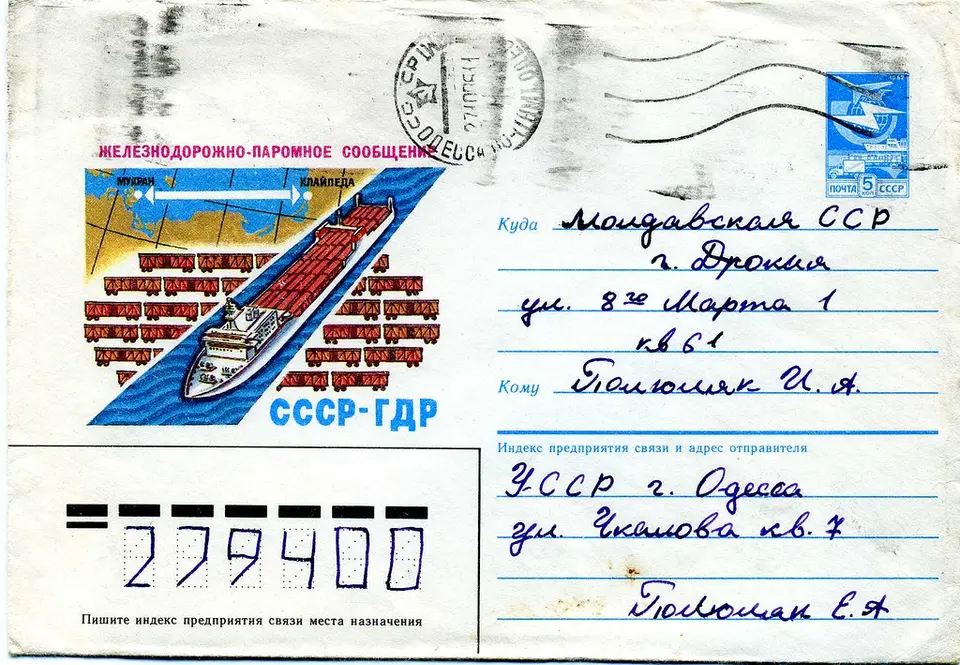 ОДЕССА
27
1982
ПОЧТА 5 КОП СССР
ЖЕЛЕЗНОДОРОЖНО-ПАРОМНОЕ СООБЩЕНИЕ
МУКРАН
КЛАЙПЕДА
СССР-ГДР
Куда Молдавская ССР
г. Дрокия
ул. 8го Марта 1
кв 61
Кому Полюляк И. А.
Индекс предприятия связи и адрес отправителя
УССР г. Одесса
ул. Чкалова кв. 7
Полюляк Е. А
279400
Пишите индекс предприятия связи места назначения